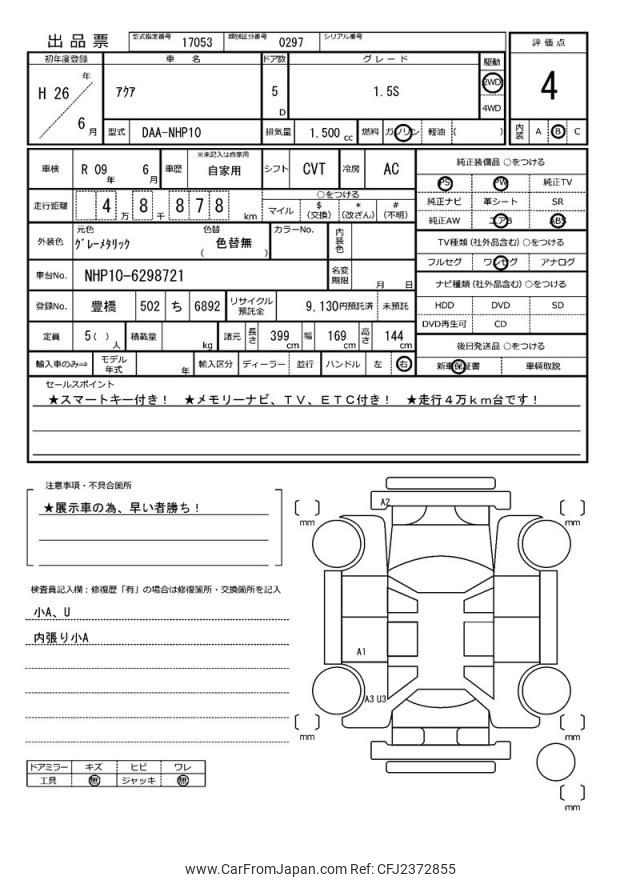 出品票 型式指定番号 17053 類別区分番号 0297 シリアル番号
初年度登録 車名 ドア数 グレード 駆動 評価点
H 26 年 6 月 アクア 5 D 1.5S 2WD 4WD 4
型式 DAA-NHP10 排気量 1.500 cc 燃料 ガソリン 軽油 ( ) 内装 A B C
車検 R 09 年 6 月 車歴 ※未記入は自家用 自家用 シフト CVT 冷房 AC
走行距離 4 万 8 千 8 7 8 km ○をつける
マイル $ (交換) * (改ざん) # (不明)
外装色 元色 グレーメタリック 色替 ( 色替無 ) カラーNo. 内装色
車台No. NHP10-6298721 名変期限 月 日
登録No. 豊橋 502 ち 6892 リサイクル預託金 9,130円預託済 未預託
定員 5( ) 人 積載量 kg 諸元 長さ 399 cm 幅 169 cm 高さ 144 cm
輸入車のみ⇒ モデル年式 年 輸入区分 ディーラー 並行 ハンドル 左 右
純正装備品 ○をつける
PS PW 純正TV
純正ナビ 革シート SR
純正AW エアB ABS
TV種類 (社外品含む) ○をつける
フルセグ ワンセグ アナログ
ナビ種類 (社外品含む) ○をつける
HDD DVD SD
DVD再生可 CD
後日発送品 ○をつける
新車保証書 車輌取説
セールスポイント
★スマートキー付き! ★メモリーナビ、TV、ETC付き! ★走行4万km台です!
注意事項・不具合箇所
★展示車の為、早い者勝ち!
検査員記入欄:修復歴「有」の場合は修復箇所・交換箇所を記入
小A、U
内張り小A
ドアミラー キズ ヒビ ワレ
工具 無 ジャッキ 無
A2
mm
mm
A1
A3 U3
mm
mm
mm
www.CarFromJapan.com Ref: CFJ2372855